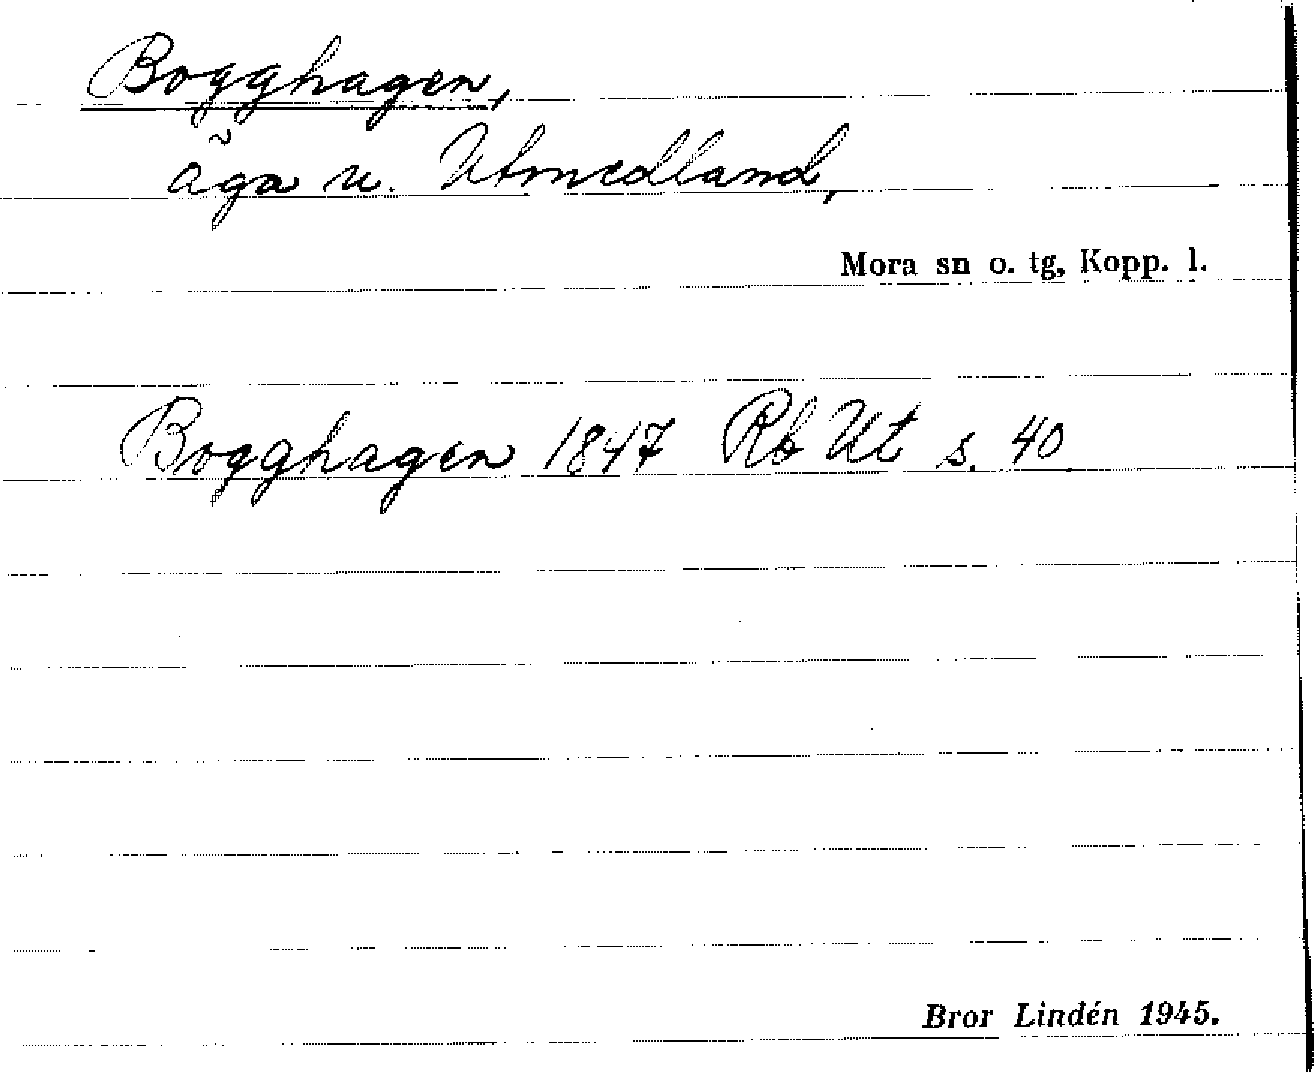 Bogghagen,
äga u. Utmedland,
Mora sn o. tg, Kopp. l.
Bogghagen 1847 Rb Ut s. 40
Bror Lindén 1945.